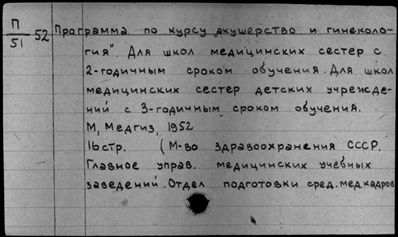 П
51
52
Программа по курсу „акушерство и гинеколо-
гия". Для школ медицинских сестер с
2-годичным сроком обучения. Для школ
медицинских сестер детских учрежде-
ний с 3-годичным сроком обучения.
М, Медгиз, 1952
16стр. (М-во здравоохранения СССР.
Главное управ. медицинских учебных
заведений. Отдел подготовки сред. мед кадров